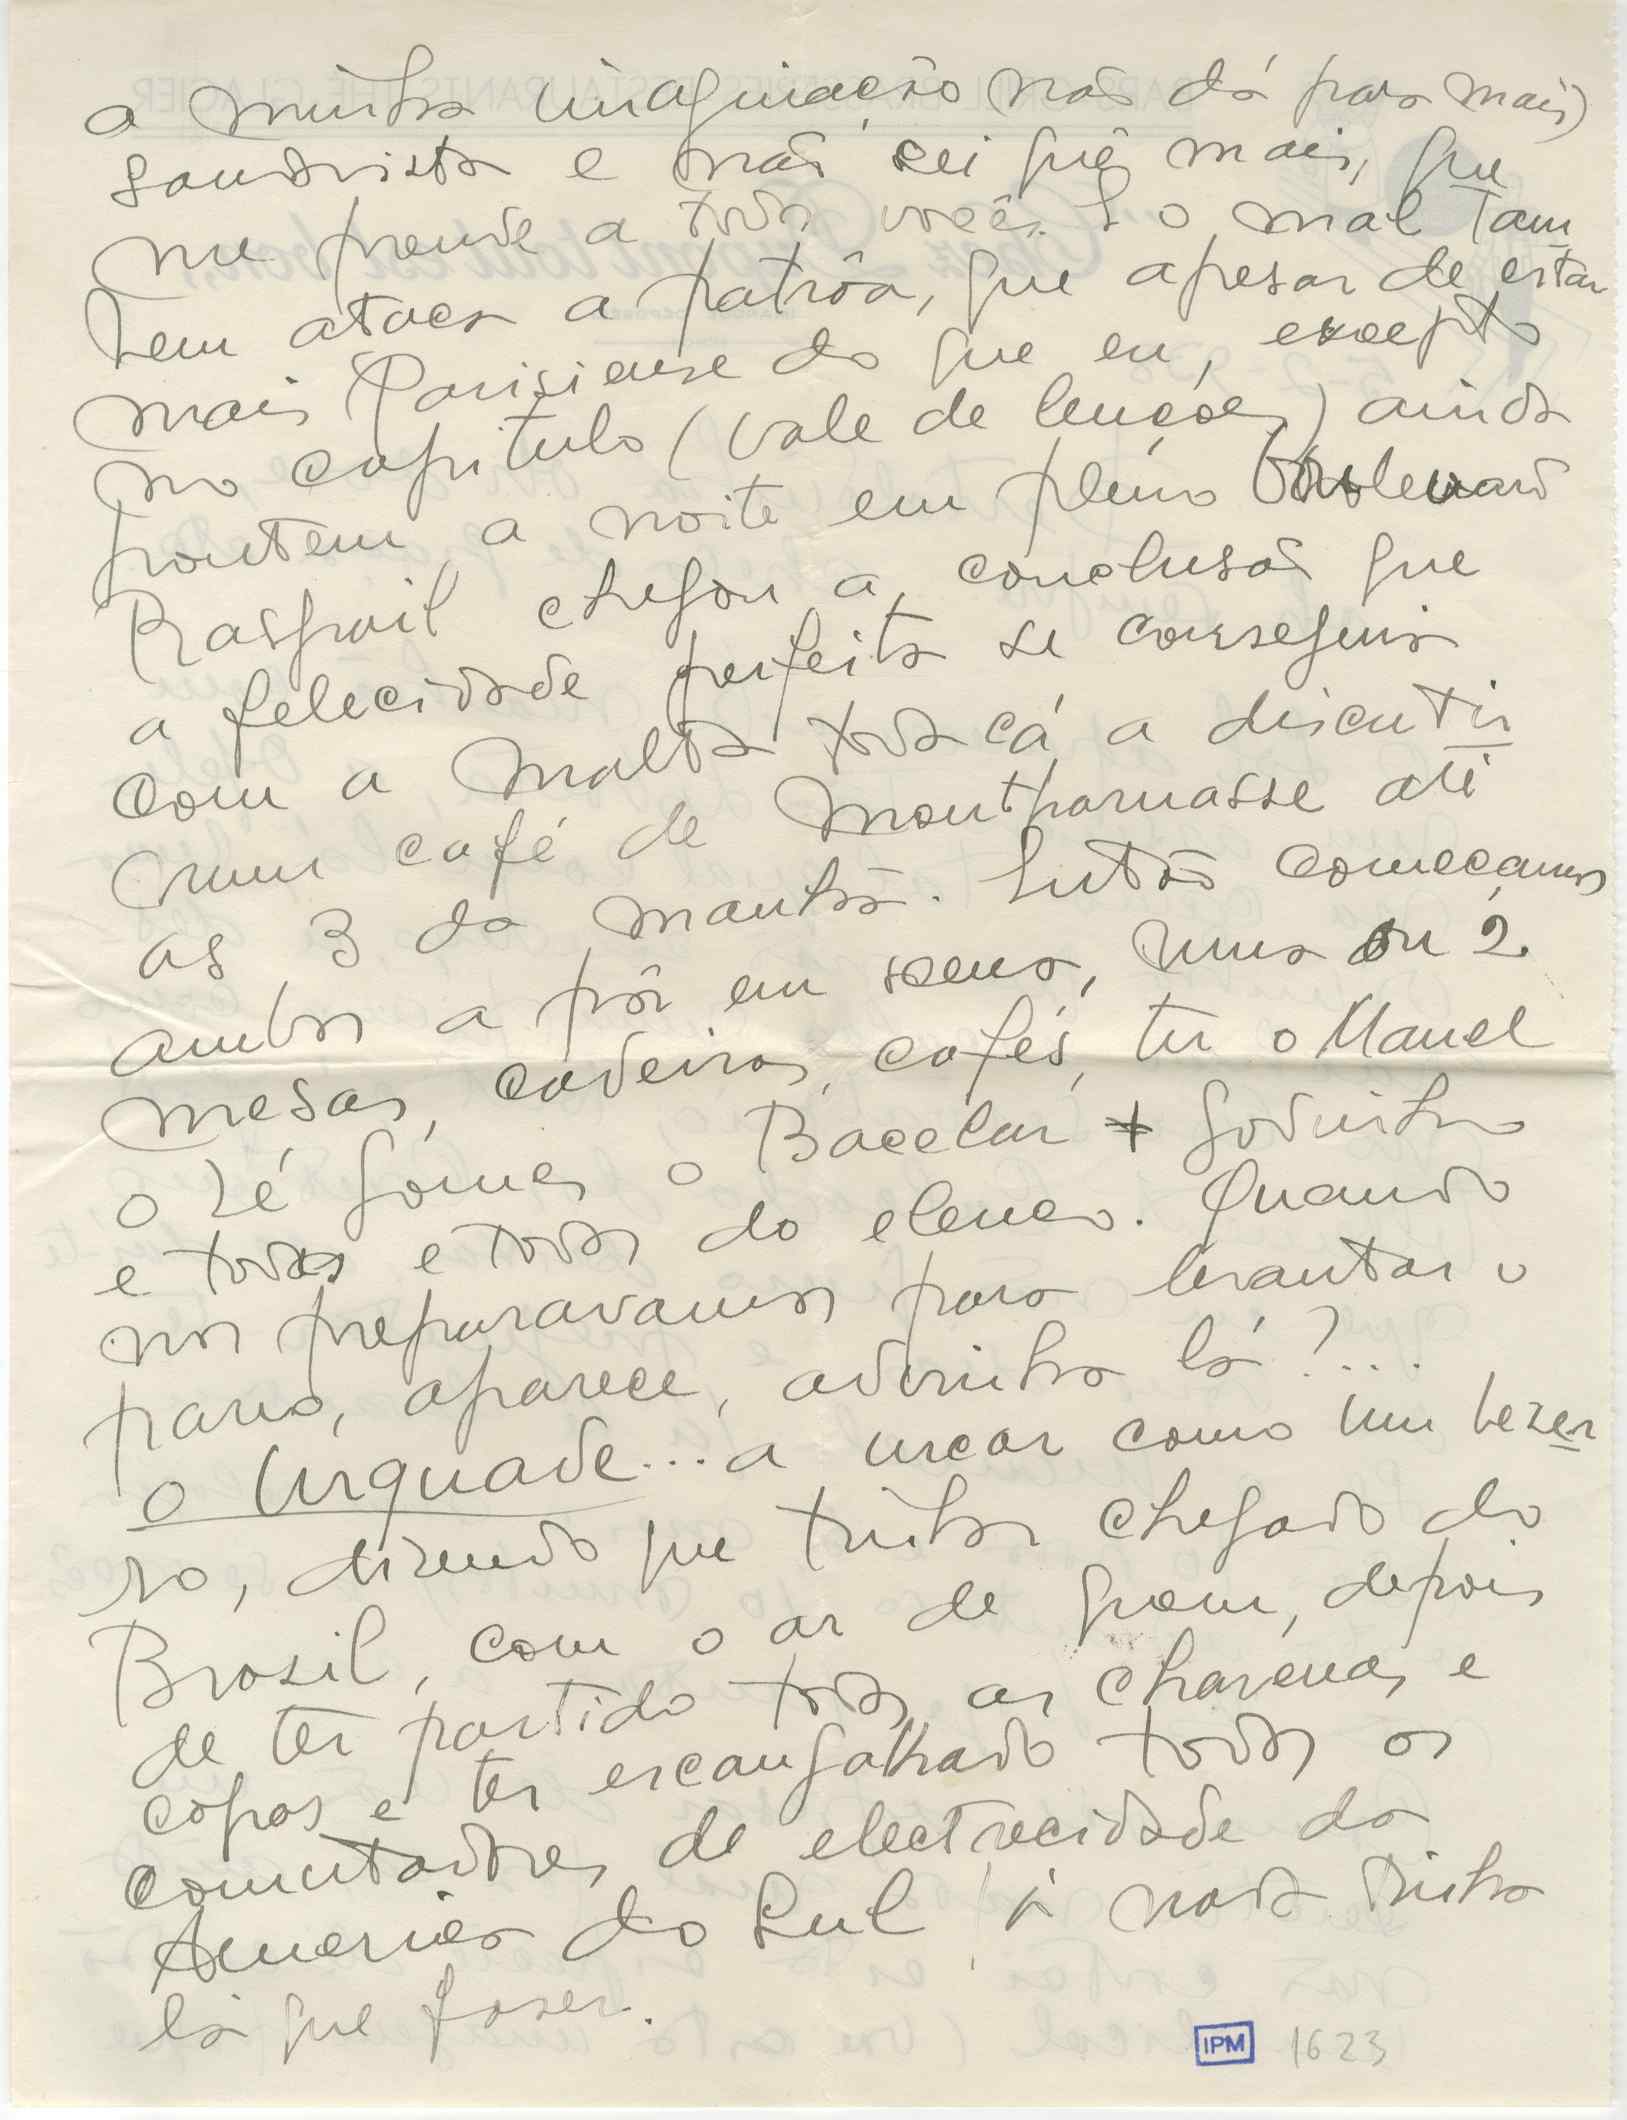 a minha imaginação não dá para mais)
saudosista e não sei quê mais, que
me prende a todos vocês. E o mal tam
bem ataca a patrôa, que apesar de estar
mais Parisiense do que eu, excepto
no capitulo (vale de lençóes) ainda
hontem a noite em pleno Boulevard
Raspail chegou a conclusão que
a felecidade perfeita se conseguia
com a malta toda cá a discutir
num café de Montparnasse até
as 3 da manhã. Então começamos
ambos a pôr em scena, uma ou 2
mesas, cadeiras, cafés, tu o Manel
o Zé Gomes o Bacelar + Godinho
e todos e todos do elenco. Quando
nos preparavamos para levantar o
pano, aparece, advinha lá?...
o Urquade... a urrar como um bezer
ro, dizendo que tinha chegado do
Brasil, com o ar de quem, depois
de ter partido todas as chavenas e
copos e ter escangalhado todos os
comutadores de electrecidade da
America do Sul já nada tinha
lá que fazer.
IPM 1623